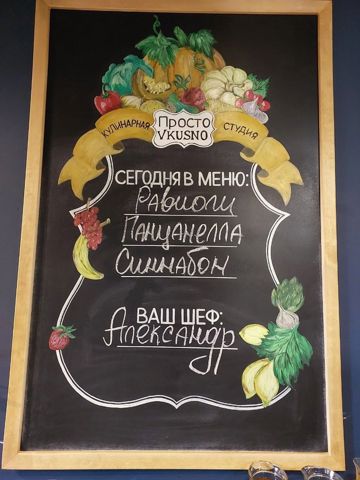 КУЛИНАРНАЯ
ПРОСТО
VKUSNO
СТУДИЯ
СЕГОДНЯ В МЕНЮ:
Равиоли
Панцанелла
Синнабон
ВАШ ШЕФ:
Александр